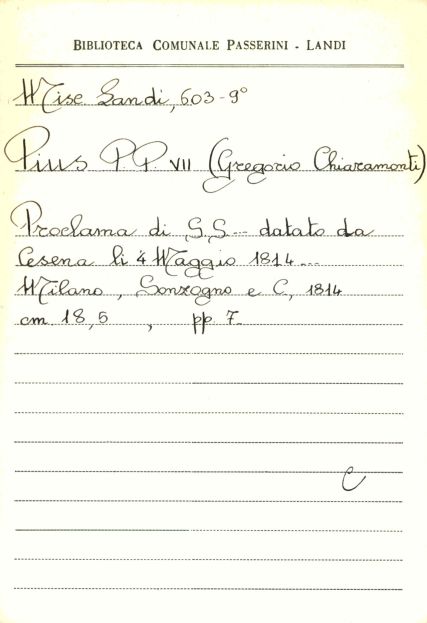 BIBLIOTECA COMUNALE PASSERINI - LANDI
Misc. Landi, 603-9°
Pius P.P. VII (Gregorio Chiaramonti)
Proclama di S.S... datato da
Cesena li 4 Maggio 1814...
Milano, Sonzogno e C., 1814
cm 18,5 , pp. 7.
C